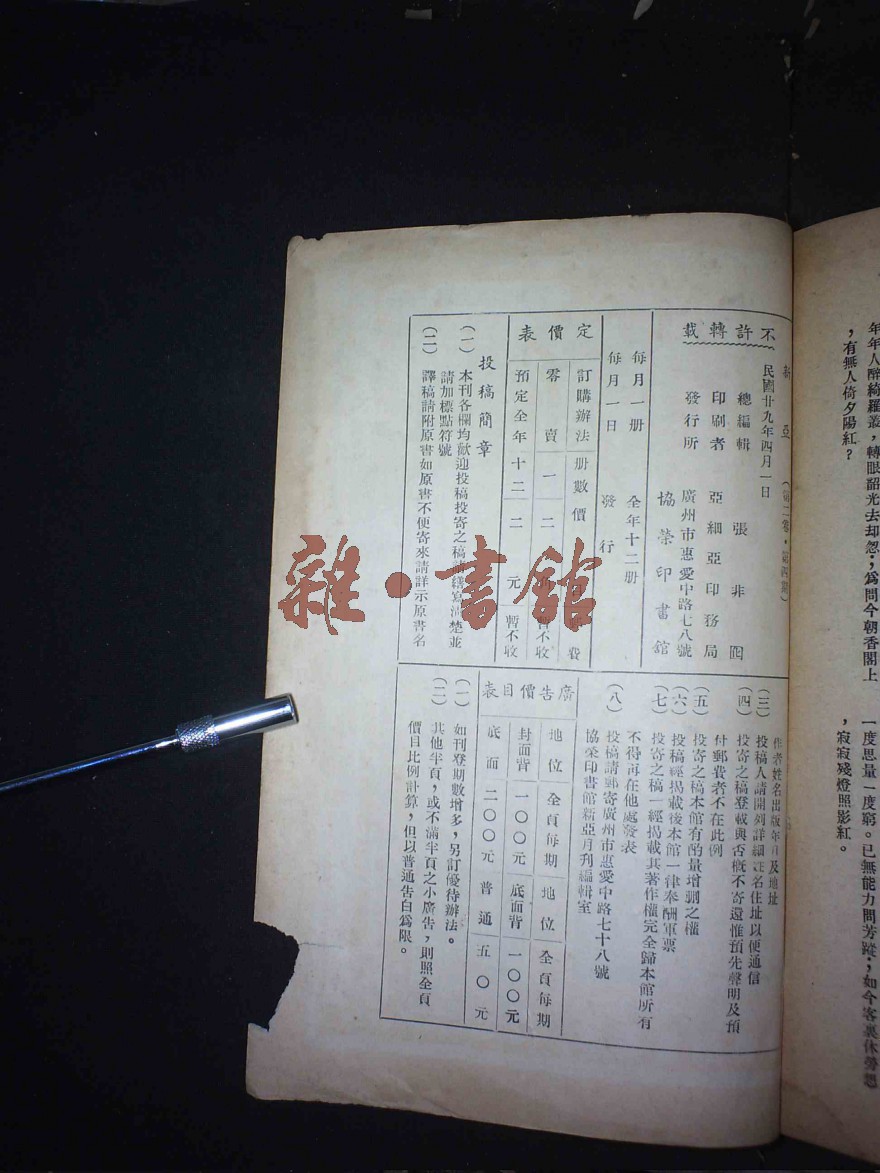 年年人醉綺羅叢，轉眼韶光去却怱；爲問今朝香閣上
，有無人倚夕陽紅？
一度思量一度窮。已無能力問芳蹤；如今客裏休勞
，寂寂殘燈照影紅。
新亞（第二卷，第四期）
民國廿九年四月一日
不許轉載
總編輯 張非
印刷者 亞細亞印務局
發行所 廣州市惠愛中路七八號
協榮印書館
每月一册 全年十二册
每月一日 發行
定價表
訂購辦法 册數 價 費
零賣 一 二 暫不收
預定全年 十二 二元 暫不收
投稿簡章
（一）本刊各欄均歡迎投稿投寄之稿請繕寫清楚並
請加標點符號
（二）譯稿請附原書如原書不便寄來請詳示原書名
作者姓名出版年月及地址
（三）投稿人請開列詳細姓名住址以便通信
（四）投寄之稿登載與否概不寄還惟預先聲明及預
付郵費者不在此例
（五）投寄之稿本館有酌量增删之權
（六）投稿經揭載後本館一律奉酬軍票
（七）投寄之稿一經揭載其著作權完全歸本館所有
不得再在他處發表
（八）投稿請郵寄廣州市惠愛中路七十八號
協榮印書館新亞月刊編輯室
廣告價目表
地位 全頁每期 地位 全頁每期
封面背 一〇〇元 底面背 一〇〇元
底面 二〇〇元 普通 五〇元
（一）如刊登期數增多，另訂優待辦法。
（二）其他半頁，或不滿半頁之小廣告，則照全頁
價目比例計算，但以普通告白爲限。
雜·書館